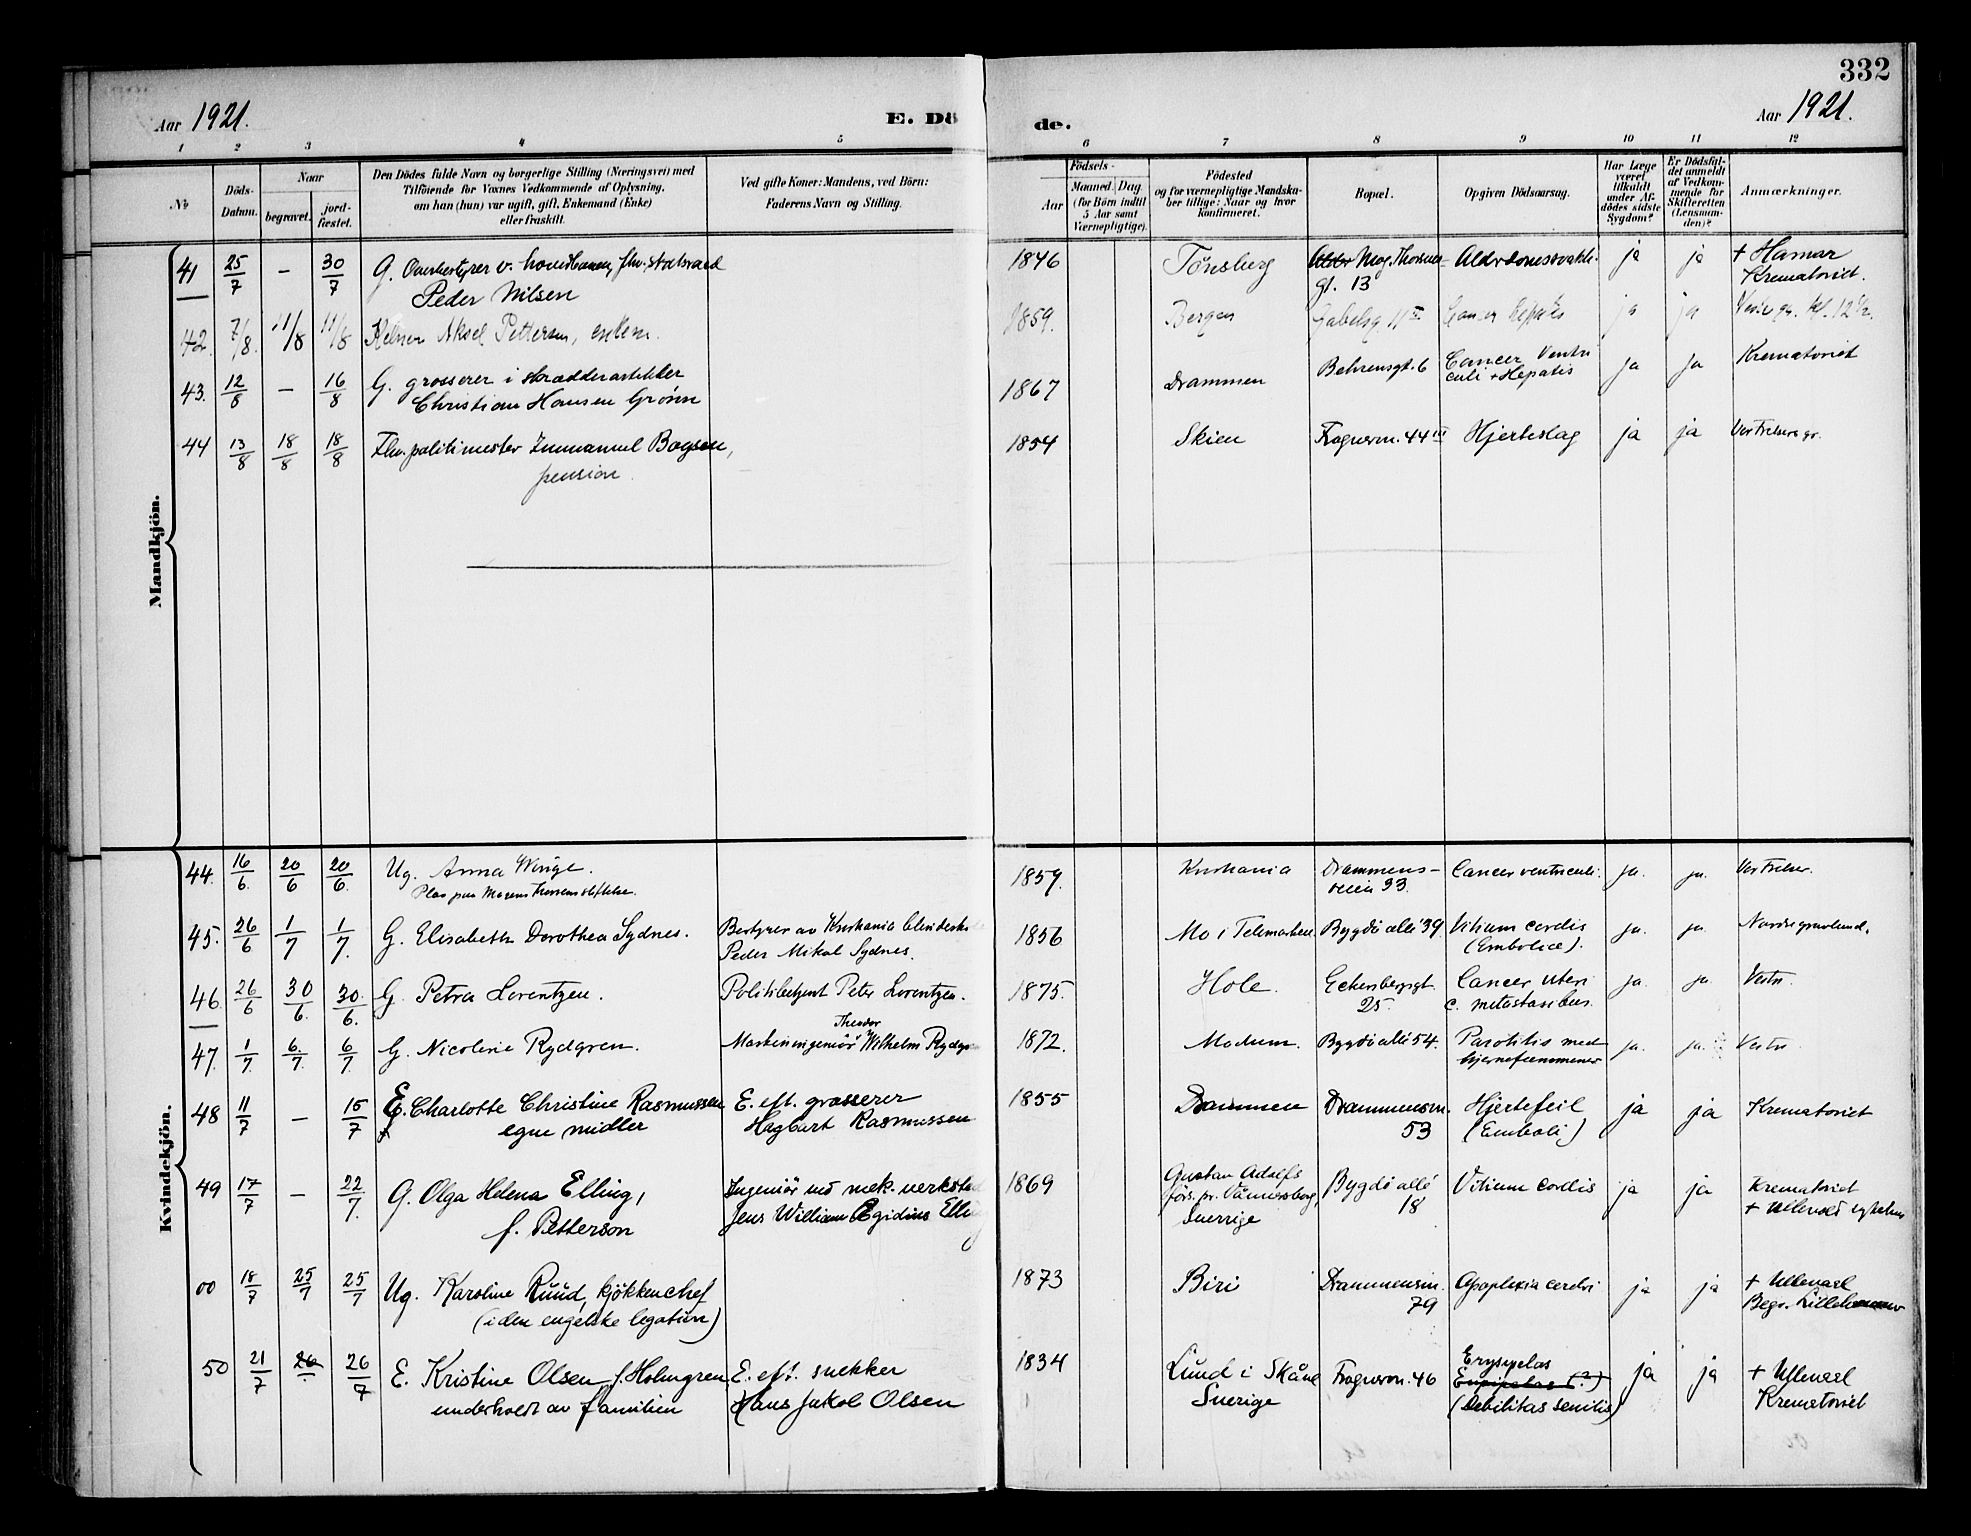 332
Aar 1921.
E. Dö
de.
Aar 1921.
1 2 3 4 5 6 7 8 9 10 11 12
No
Döds-
Datum.
Naar
begravet.
jord-
fæstet.
Den Dödes fulde Navn og borgerlige Stilling (Næringsvei) med
Tilföiende for Voxnes Vedkommende af Oplysning,
om han (hun) var ugift, gift, Enkemand (Enke)
eller fraskilt.
Ved gifte Koner: Mandens, ved Börn:
Faderens Navn og Stilling.
Födsels-
Aar
Maaned. Dag.
(for Börn indtil
5 Aar samt
Værnepligtige).
Födested
og for værnepligtige Mandska-
ber tillige: Naar og hvor
konfirmeret.
Bopæl.
Opgiven Dödsaarsag.
Har Læge
været
tilkaldt
under Af-
dödes sidste
Sygdom?
Er Dödsfal-
det anmeldt
af Vedkom-
mende for
Skifteretten
(Lensman-
den)?
Anmærkninger.
Mandkjön.
41 25/7 – 30/7 G. Overbestyrer v. hovedbanen, fhv. statsraad
Peder Nilsen
1846 Tönsberg Mog. Thorsens
gt. 13 Alderdomssvakh. ja ja + Hamar
Krematoriet.
42. 7/8. 11/8 11/8 Kelner Aksel Pettersen, enkem.
1859. Bergen Gabelsg. 11 II Cancer hepatis ja ja Vestre gr. kl. 12 1/2.
43. 12/8 – 16/8 G. grosserer i skrædderartikler
Christian Hansen Grönn
1867 Drammen Behrensgt. 6 Cancer Ventri
culi + Hepatis ja ja Krematoriet
44 13/8 18/8 18/8 Fhv. politimester Immanuel Boysen,
pension
1854 Skien Frognervn. 44 III Hjerteslag ja ja Vor Frelsers gr.
Kvindekjön.
44. 16/6. 20/6 20/6. Ug. Anna Winge.
1859. Kristiania Drammens-
veien 33. Cancer ventriculi. ja. ja. Vor Frelser.
45. 26/6 1/7 1/7. G. Elisabeth Dorothea Sydnes.
Bestyrer av Kristiania blindesk
Peder Mikal Sydnes.
1856 Mo i Telemarken Bygdö allé 39 Vitium cordis
(Embolia). ja. ja. Nordre gravlund.
46. 26/6 30/6. 30./6. G. Petra Lorentzen.
Politibetjent Peter Lorentzen.
1875. Hole. Eckersbergsgt.
25. Cancer uteri
c. metastasibus. ja. ja. Vestre
47. 1/7. 6/7. 6/7. G. Nicoline Rydgren.
Theodor
Maskiningeniör Wilhelm Rydgr
1872. Modum. Bygdö allé 54. Parotitis med
hjernefænomener ja. ja. Vestre
48 11/7 – 15/7 E. Charlotte Christine Rasmussen
egne midler
E. eft. grosserer
Hagbart Rasmussen
1855 Drammen Drammensvn.
53 Hjertefeil
(Emboli) ja ja Krematoriet
49 17/7 – 22/7. G. Olga Helena Elling,
f. Petterson
Ingeniör ved mek. verksted
Jens William Egidius Elling
1869 Gustav Adolfs
förs. pr. Vänersborg,
Sverige Bygdö allé
18 Vitium cordis ja ja Krematoriet
+ Ullevold sykehus
00 18/7 25/7 25/7 Ug. Karoline Ruud, kjökkenchef
(i den engelske legation)
1873 Biri Drammensvn.
79 Apoplexia cerebri ja ja + Ullevaal
Begr. Lillehammer
50 21/7 26 26/7 E. Kristine Olsen f. Holmgren
underholdt av familien
E. eft. snekker
Hans Jakob Olsen
1834 Lund i Skåne
Sverige Frognervn. 46 Erysipelas
Erysipelas (?)
(Debilitas senilis) ja ja + Ullevaal
Krematoriet